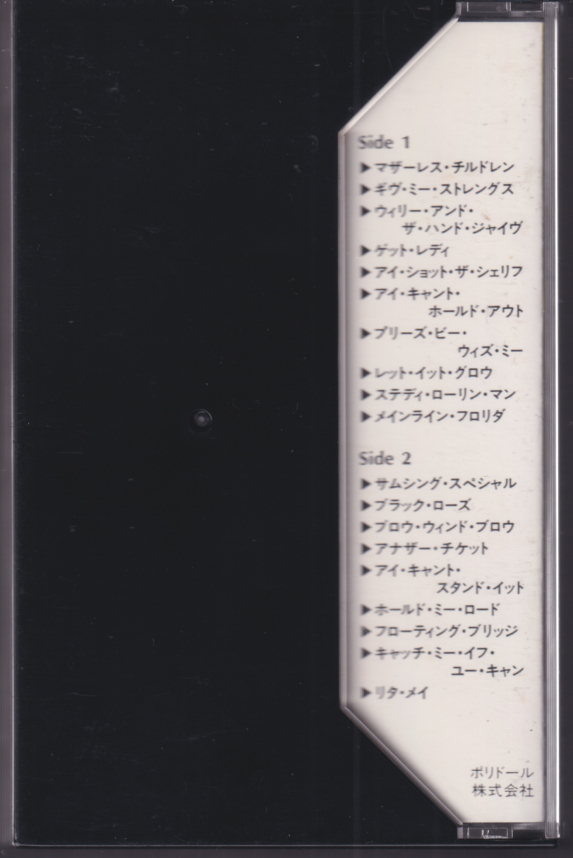 Side 1
▶マザーレス・チルドレン
▶ギヴ・ミー・ストレングス
▶ウィリー・アンド・
ザ・ハンド・ジャイヴ
▶ゲット・レディ
▶アイ・ショット・ザ・シェリフ
▶アイ・キャント・
ホールド・アウト
▶プリーズ・ビー・
ウィズ・ミー
▶レット・イット・グロウ
▶ステディ・ローリン・マン
▶メインライン・フロリダ
Side 2
▶サムシング・スペシャル
▶ブラック・ローズ
▶ブロウ・ウィンド・ブロウ
▶アナザー・チケット
▶アイ・キャント・
スタンド・イット
▶ホールド・ミー・ロード
▶フローティング・ブリッジ
▶キャッチ・ミー・イフ・
ユー・キャン
▶リタ・メイ
ポリドール
株式会社